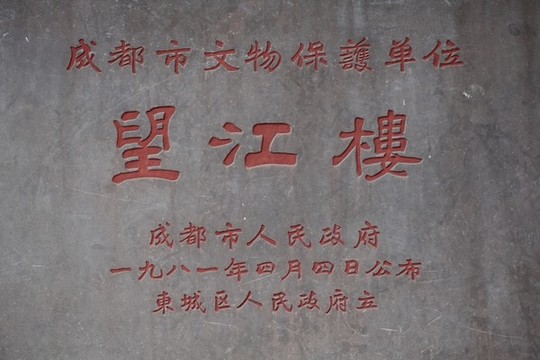 成都市文物保護单位
望江樓
成都市人民政府
一九八一年四月四日公布
東城区人民政府立